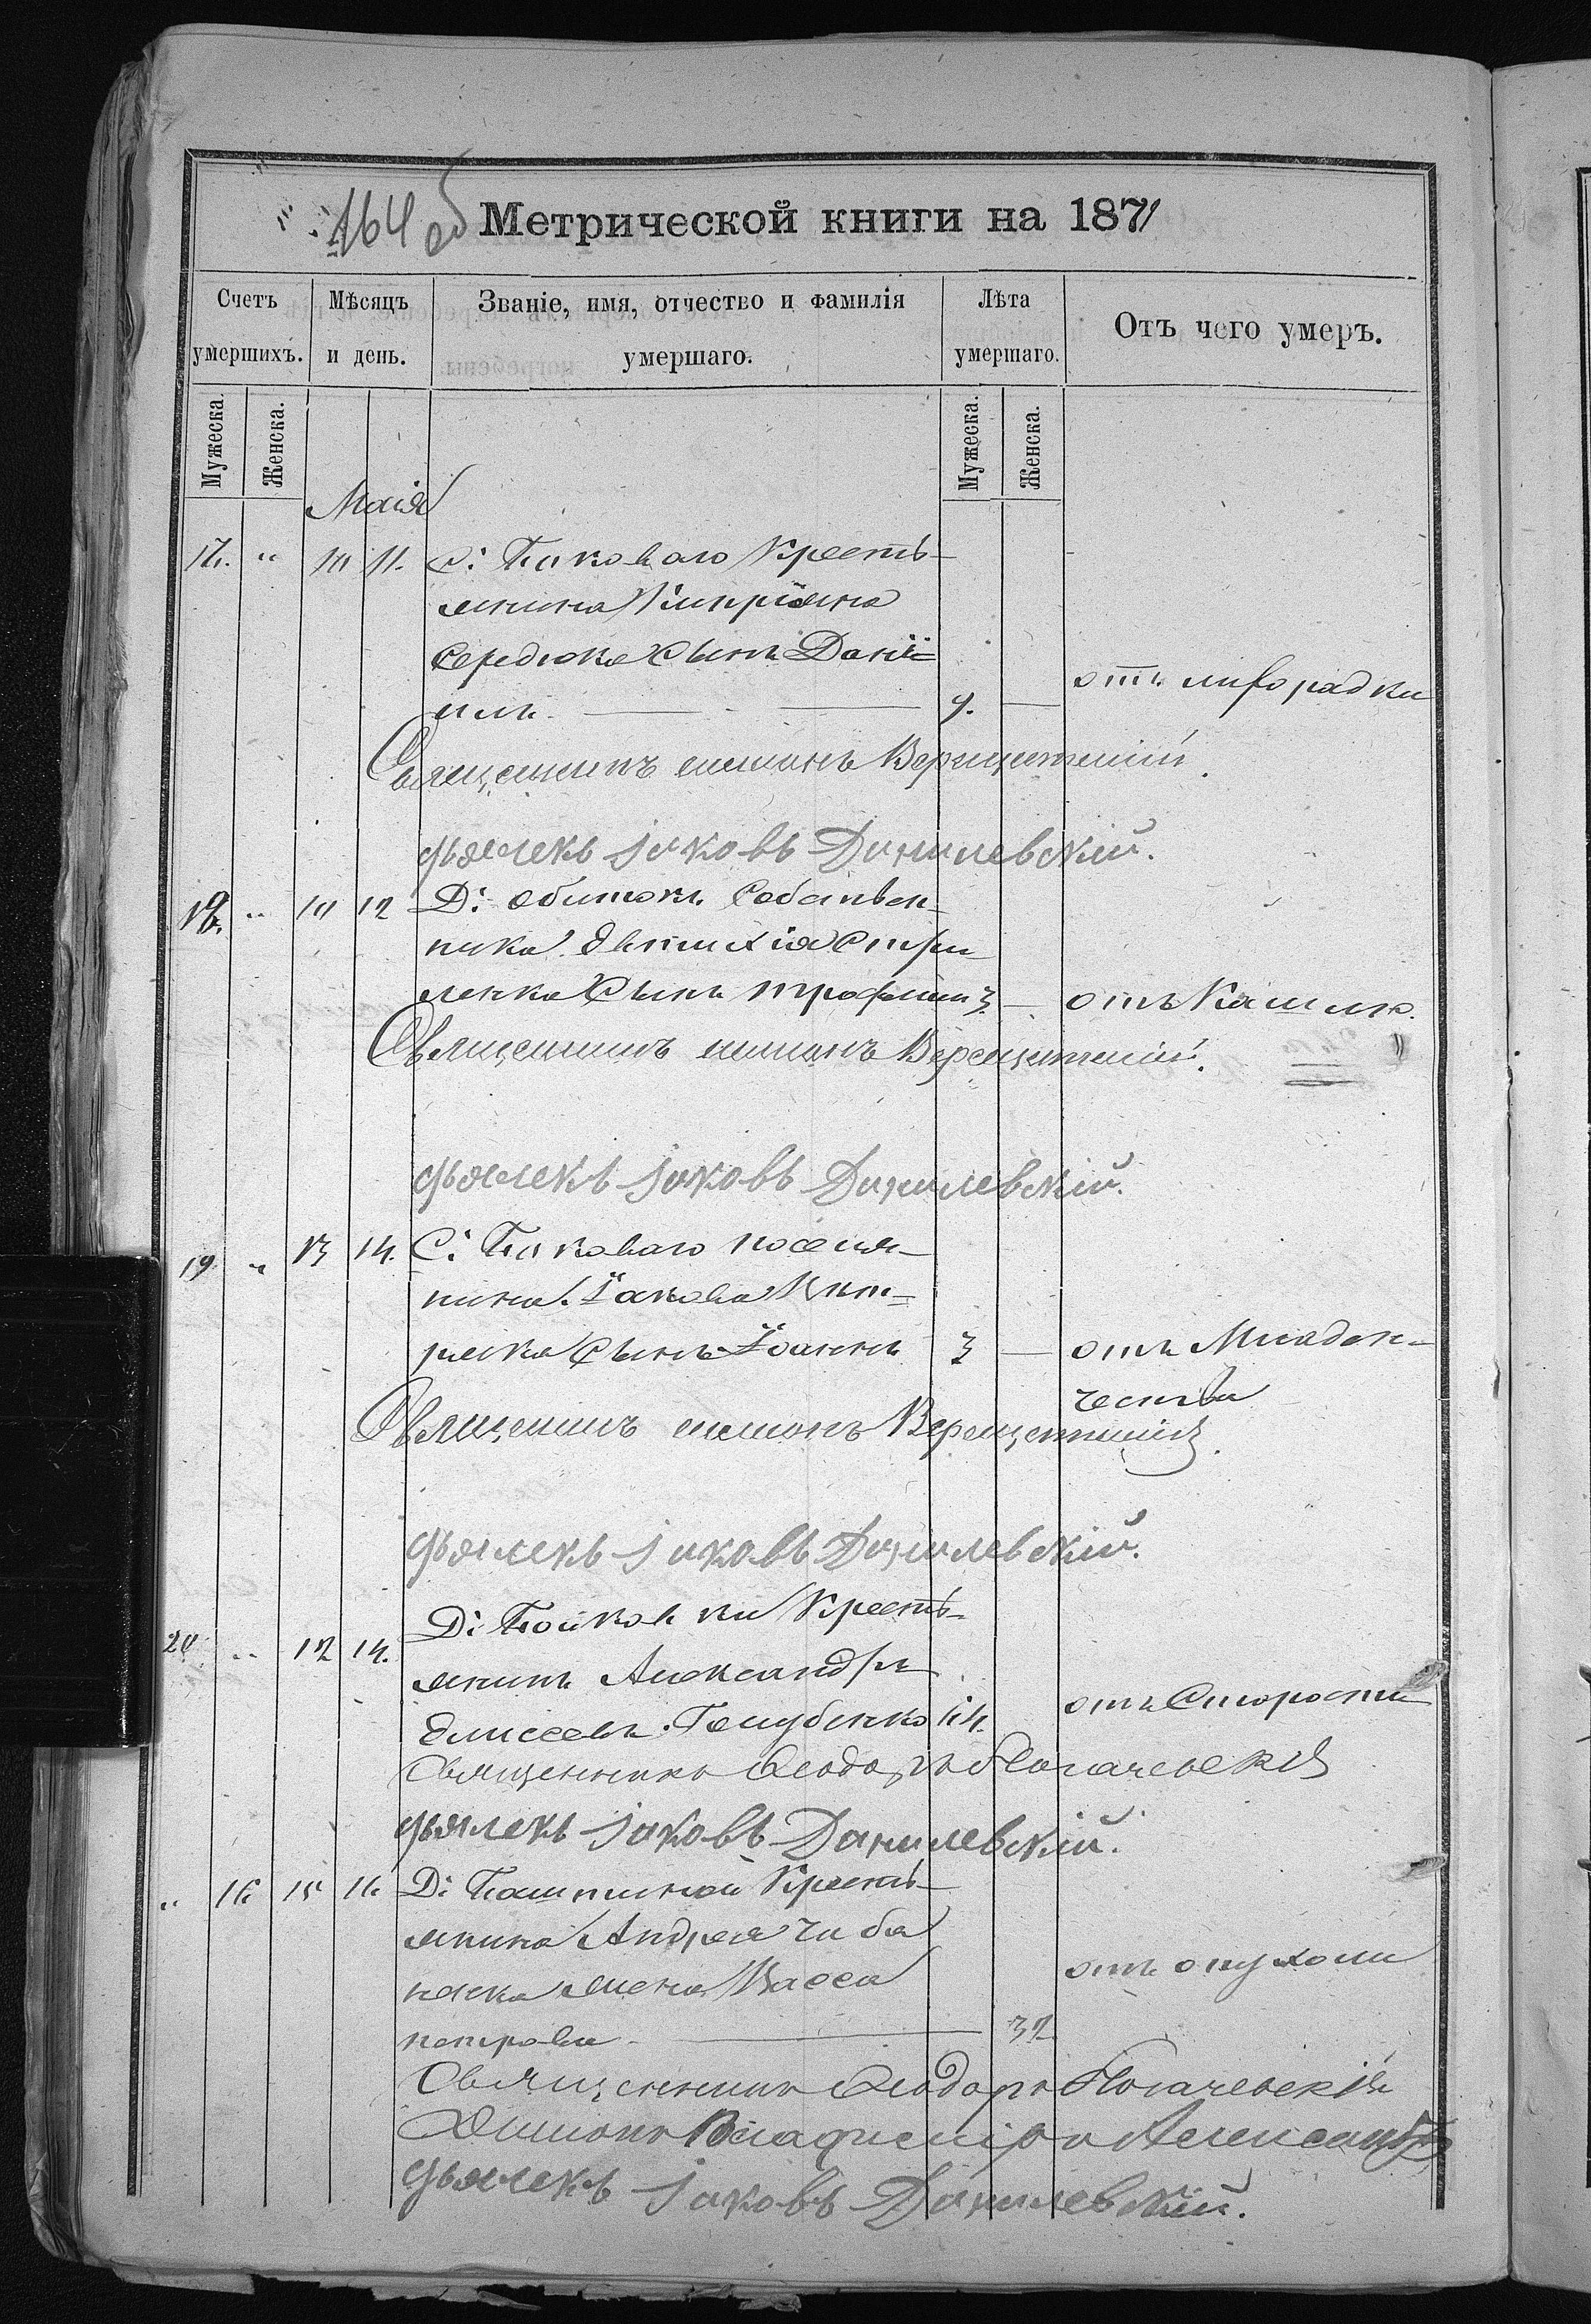 164 об
Метрической книги на 1871
Счетъ умершихъ.
Мѣсяцъ и день.
Званіе, имя, отчество и фамилія умершаго.
Лѣта умершаго.
Отъ чего умеръ.
Мужеска.
Женска.
Мужеска.
Женска.
Маія
17. " 10 11. С: Боковаго Кресть-
янина Кипріяна
Середюка Сынъ Дані-
илъ 9. — отъ лихорадки
Священникъ Верещетинскій.
дьячекъ Іаковъ Данилевскій.
18. " 10 12 Д: Обитокъ Собствен-
ника Евтихія Стри
ленка Сынъ Трофимъ 3. — отъ Кашлю.
Священникъ Верещетинскій.
дьячекъ Іаковъ Данилевскій.
19 " 13 14. С: Боковаго поселя-
нина Іакова
Сынъ Іоаннъ 3 — отъ Младен-
чества
Священникъ Верещетинскій.
дьячекъ Іаковъ Данилевскій.
20 " 12 14. Д: Бойковки Кресть-
янинъ Александръ
Елисеевъ Голубенко отъ Старости
Священникъ Ѳеодоръ
дьячекъ Іаковъ Данилевскій.
" 16 15 16 Д: Кресть-
янина Андрея Чиба
жена Васса
Петрова — 32 отъ опухоли
Священникъ Ѳеодоръ
Діаконъ Владиміръ
дьячекъ Іаковъ Данилевскій.